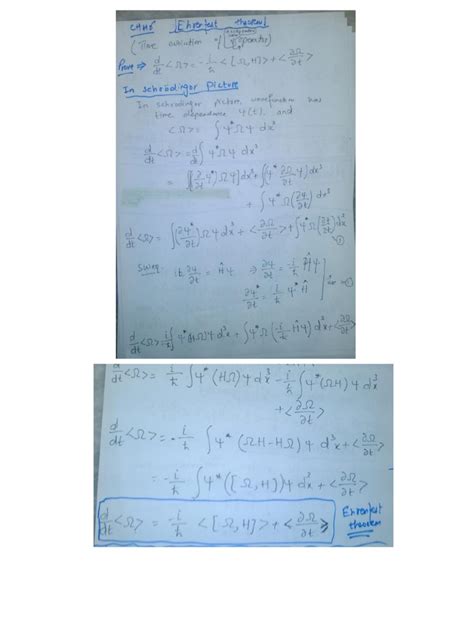 CH#6 [Ehrenfest theorem]
(Time evolution of operator)
Prove ⇒ d/dt <Ω> = -i/ħ <[Ω,H]> + <∂Ω/∂t>
In schrodinger Picture
In schrodinger picture, wavefunction has
time dependence ψ(t), and
<Ω> = ∫ψ*Ωψ dx³
d/dt <Ω> = d/dt ∫ψ*Ωψ dx³
= ∫[(∂/∂t ψ*)Ωψ] dx³ + ∫(ψ* ∂Ω/∂t ψ) dx³
+ ∫ψ*Ω(∂ψ/∂t) dx³
d/dt <Ω> = ∫(∂ψ*/∂t)Ωψ dx³ + <∂Ω/∂t> + ∫ψ*Ω(∂ψ/∂t) dx³
Using: iħ ∂ψ/∂t = Ĥψ ⇒ ∂ψ/∂t = -i/ħ Ĥψ
∂ψ*/∂t = i/ħ ψ*Ĥ
d/dt <Ω> = i/ħ ∫ψ*(HΩ)ψ d³x + ∫ψ*Ω(-i/ħ Ĥψ) d³x + <∂Ω/∂t>
d/dt <Ω> = i/ħ ∫ψ*(HΩ)ψ dx³ - i/ħ ∫ψ*(ΩH)ψ dx³
+ <∂Ω/∂t>
d/dt <Ω> = -i/ħ ∫ψ*(ΩH-HΩ)ψ d³x + <∂Ω/∂t>
= -i/ħ ∫ψ*([Ω,H])ψ d³x + <∂Ω/∂t>
d/dt <Ω> = -i/ħ <[Ω,H]> + <∂Ω/∂t>
Ehrenfest
theorem